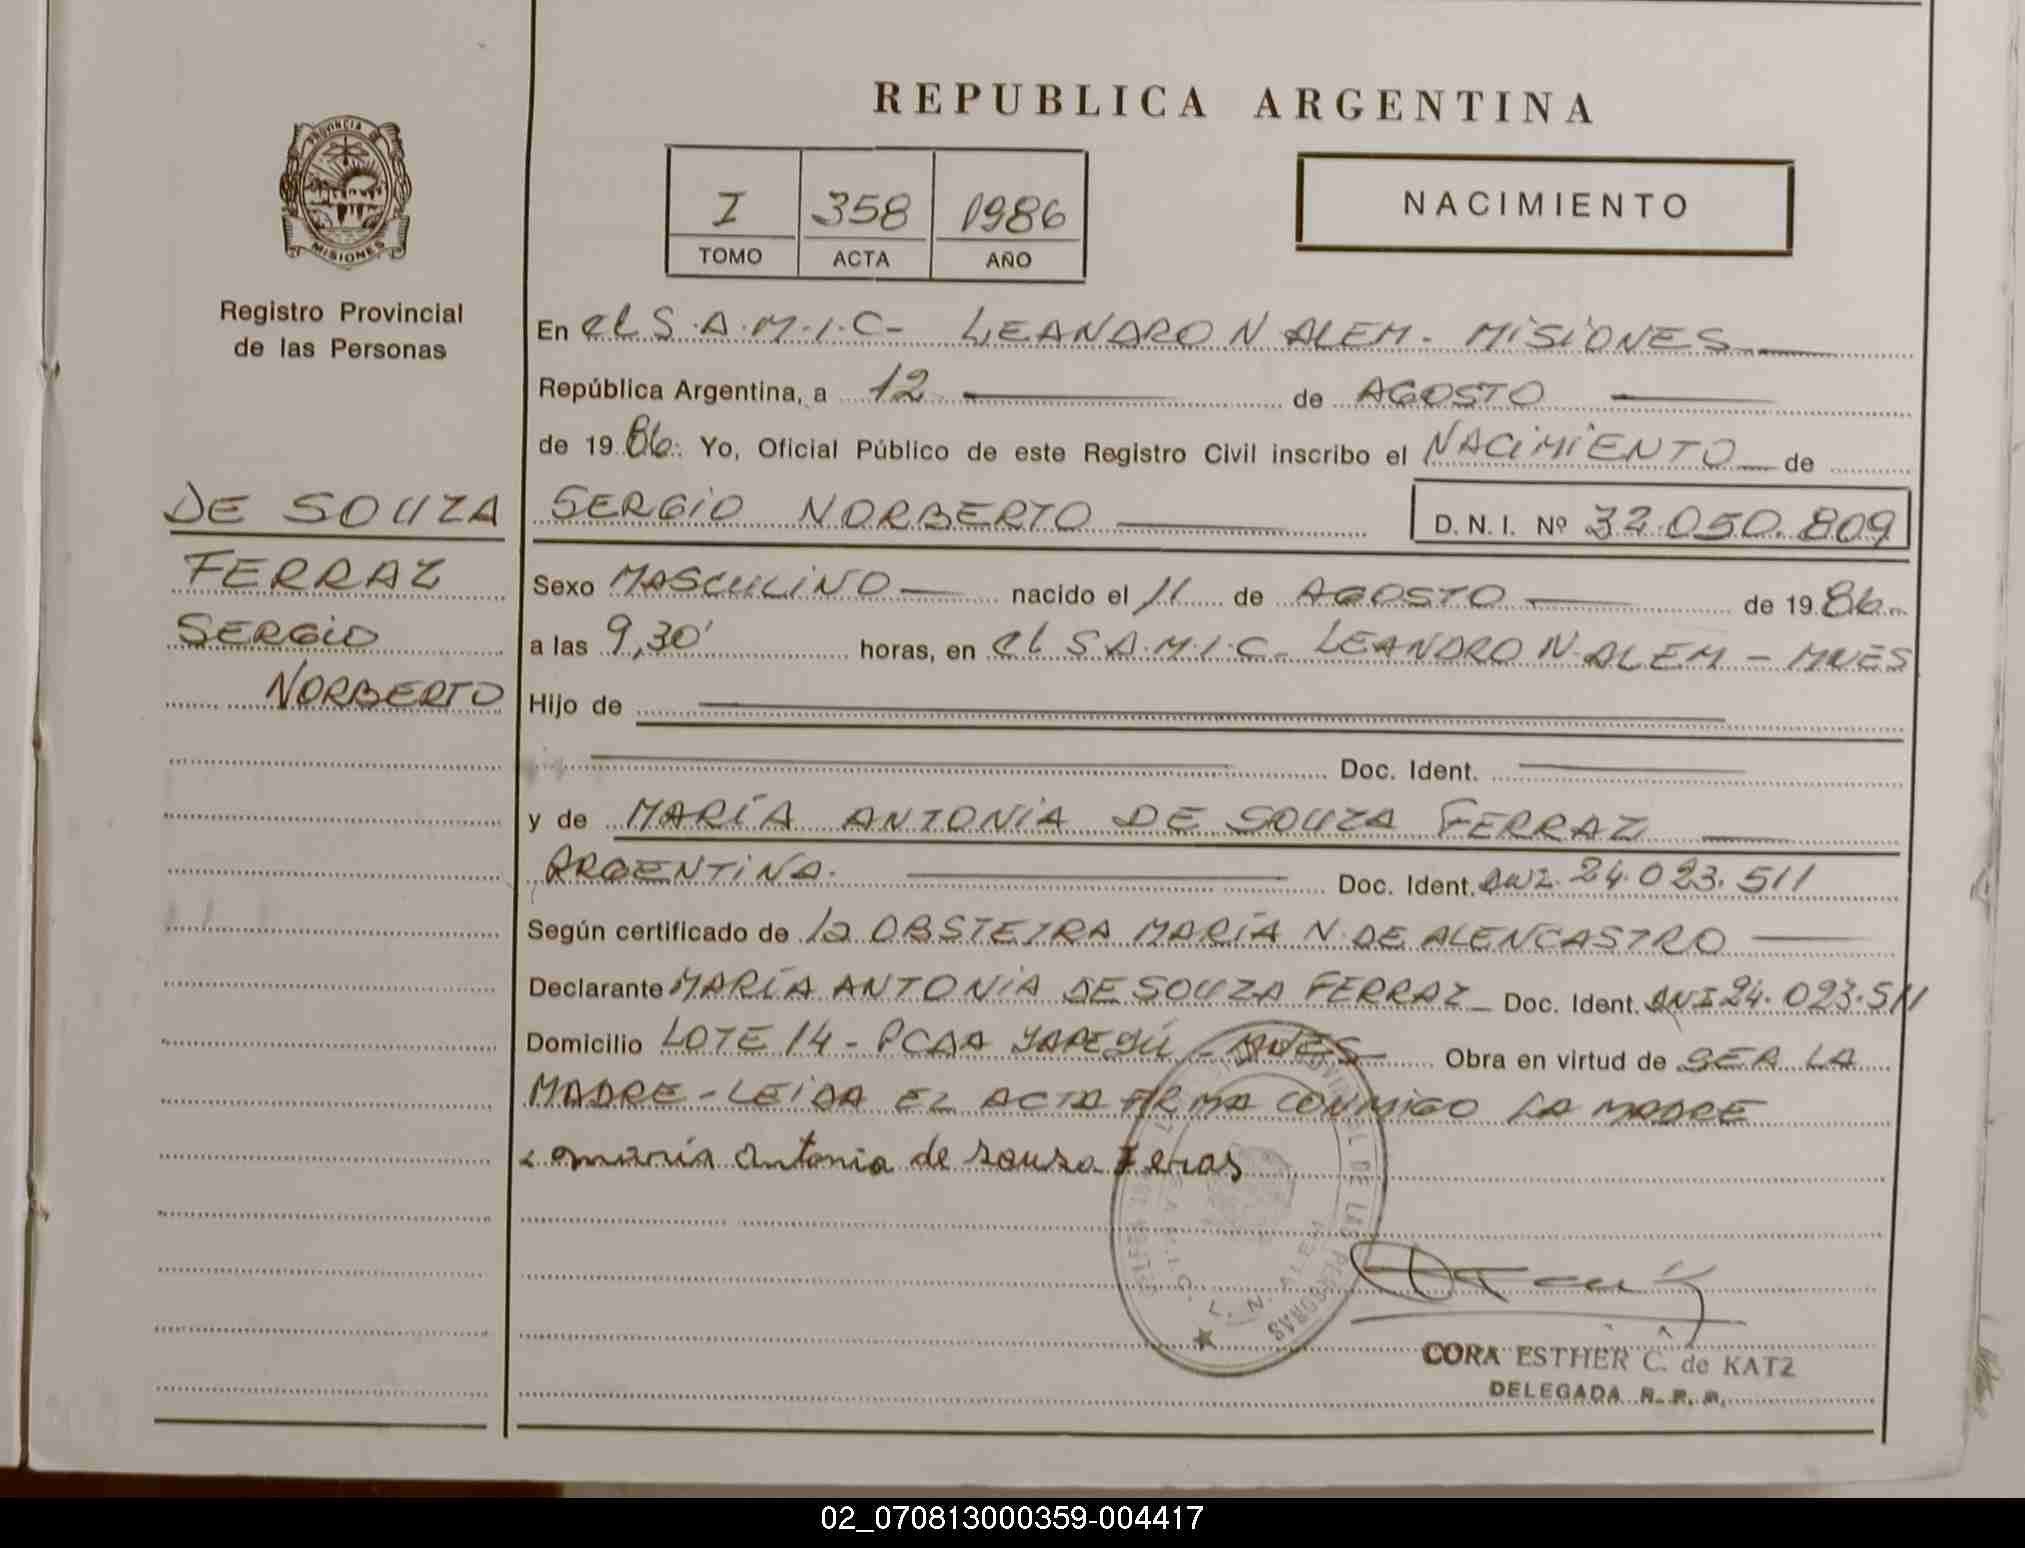 REPUBLICA ARGENTINA
PROVINCIA DE
MISIONES
Registro Provincial
de las Personas
I 358 1986
TOMO ACTA AÑO
NACIMIENTO
En el S.A.M.I.C- LEANDRO N ALEM - MISIONES
República Argentina, a 12 de AGOSTO
de 1986. Yo, Oficial Público de este Registro Civil inscribo el NACIMIENTO de
DE SOUZA
FERRAZ
SERGIO
NORBERTO
SERGIO NORBERTO D. N. I. Nº 32.050.809
Sexo MASCULINO nacido el 11 de AGOSTO de 1986
a las 9,30' horas, en el S.A.M.I.C- LEANDRO N. ALEM - MNES
Hijo de
Doc. Ident.
y de MARÍA ANTONIA DE SOUZA FERRAZ
ARGENTINA. Doc. Ident. DNI. 24.023.511
Según certificado de la OBSTETRA MARÍA N. DE ALENCASTRO
Declarante MARÍA ANTONIA DE SOUZA FERRAZ Doc. Ident. DNI 24.023.511
Domicilio LOTE 14 - PCDA YAPEYÚ - MNES Obra en virtud de SER LA
MADRE - LEIDA EL ACTA FIRMA CONMIGO LA MADRE
maria antonia de souza Feras
L. N. ALEM
DE LAS PERSONAS
CORA ESTHER C. de KATZ
DELEGADA R. P. P.
02_070813000359-004417